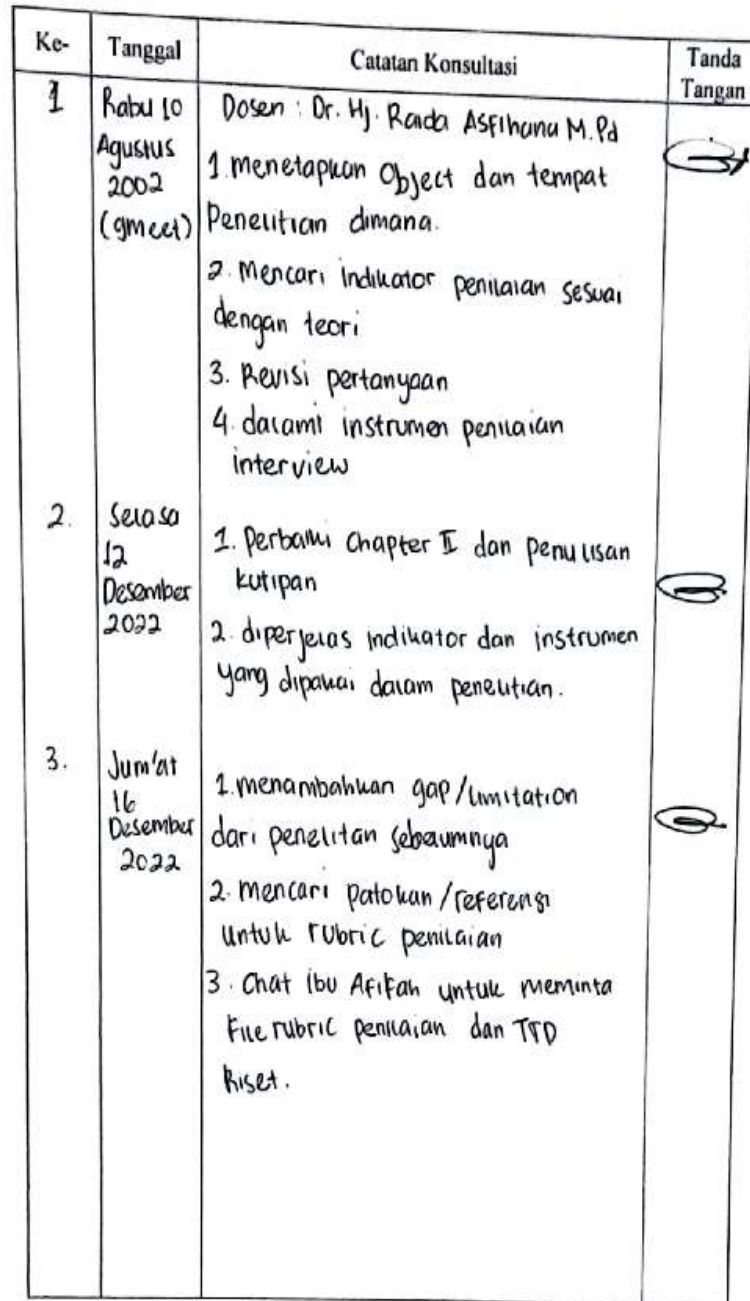 Ke- Tanggal Catatan Konsultasi Tanda Tangan
1 Rabu 10 Agustus 2002 (gmeet)
Dosen : Dr. Hj. Raida Asfihana M.Pd
1. menetapkan Object dan tempat
Penelitian dimana.
2. Mencari indikator penilaian sesuai
dengan teori
3. Revisi pertanyaan
4. dalami instrumen penilaian
interview
2. Selasa 12 Desember 2022
1. Perbaiki Chapter II dan penulisan
kutipan
2. diperjelas indikator dan instrumen
yang dipakai dalam penelitian.
3. Jum'at 16 Desember 2022
1. menambahkan gap/limitation
dari penelitan sebelumnya
2. mencari patokan/referensi
untuk rubric penilaian
3. Chat ibu Afifah untuk meminta
File rubric penilaian dan TTD
Riset.